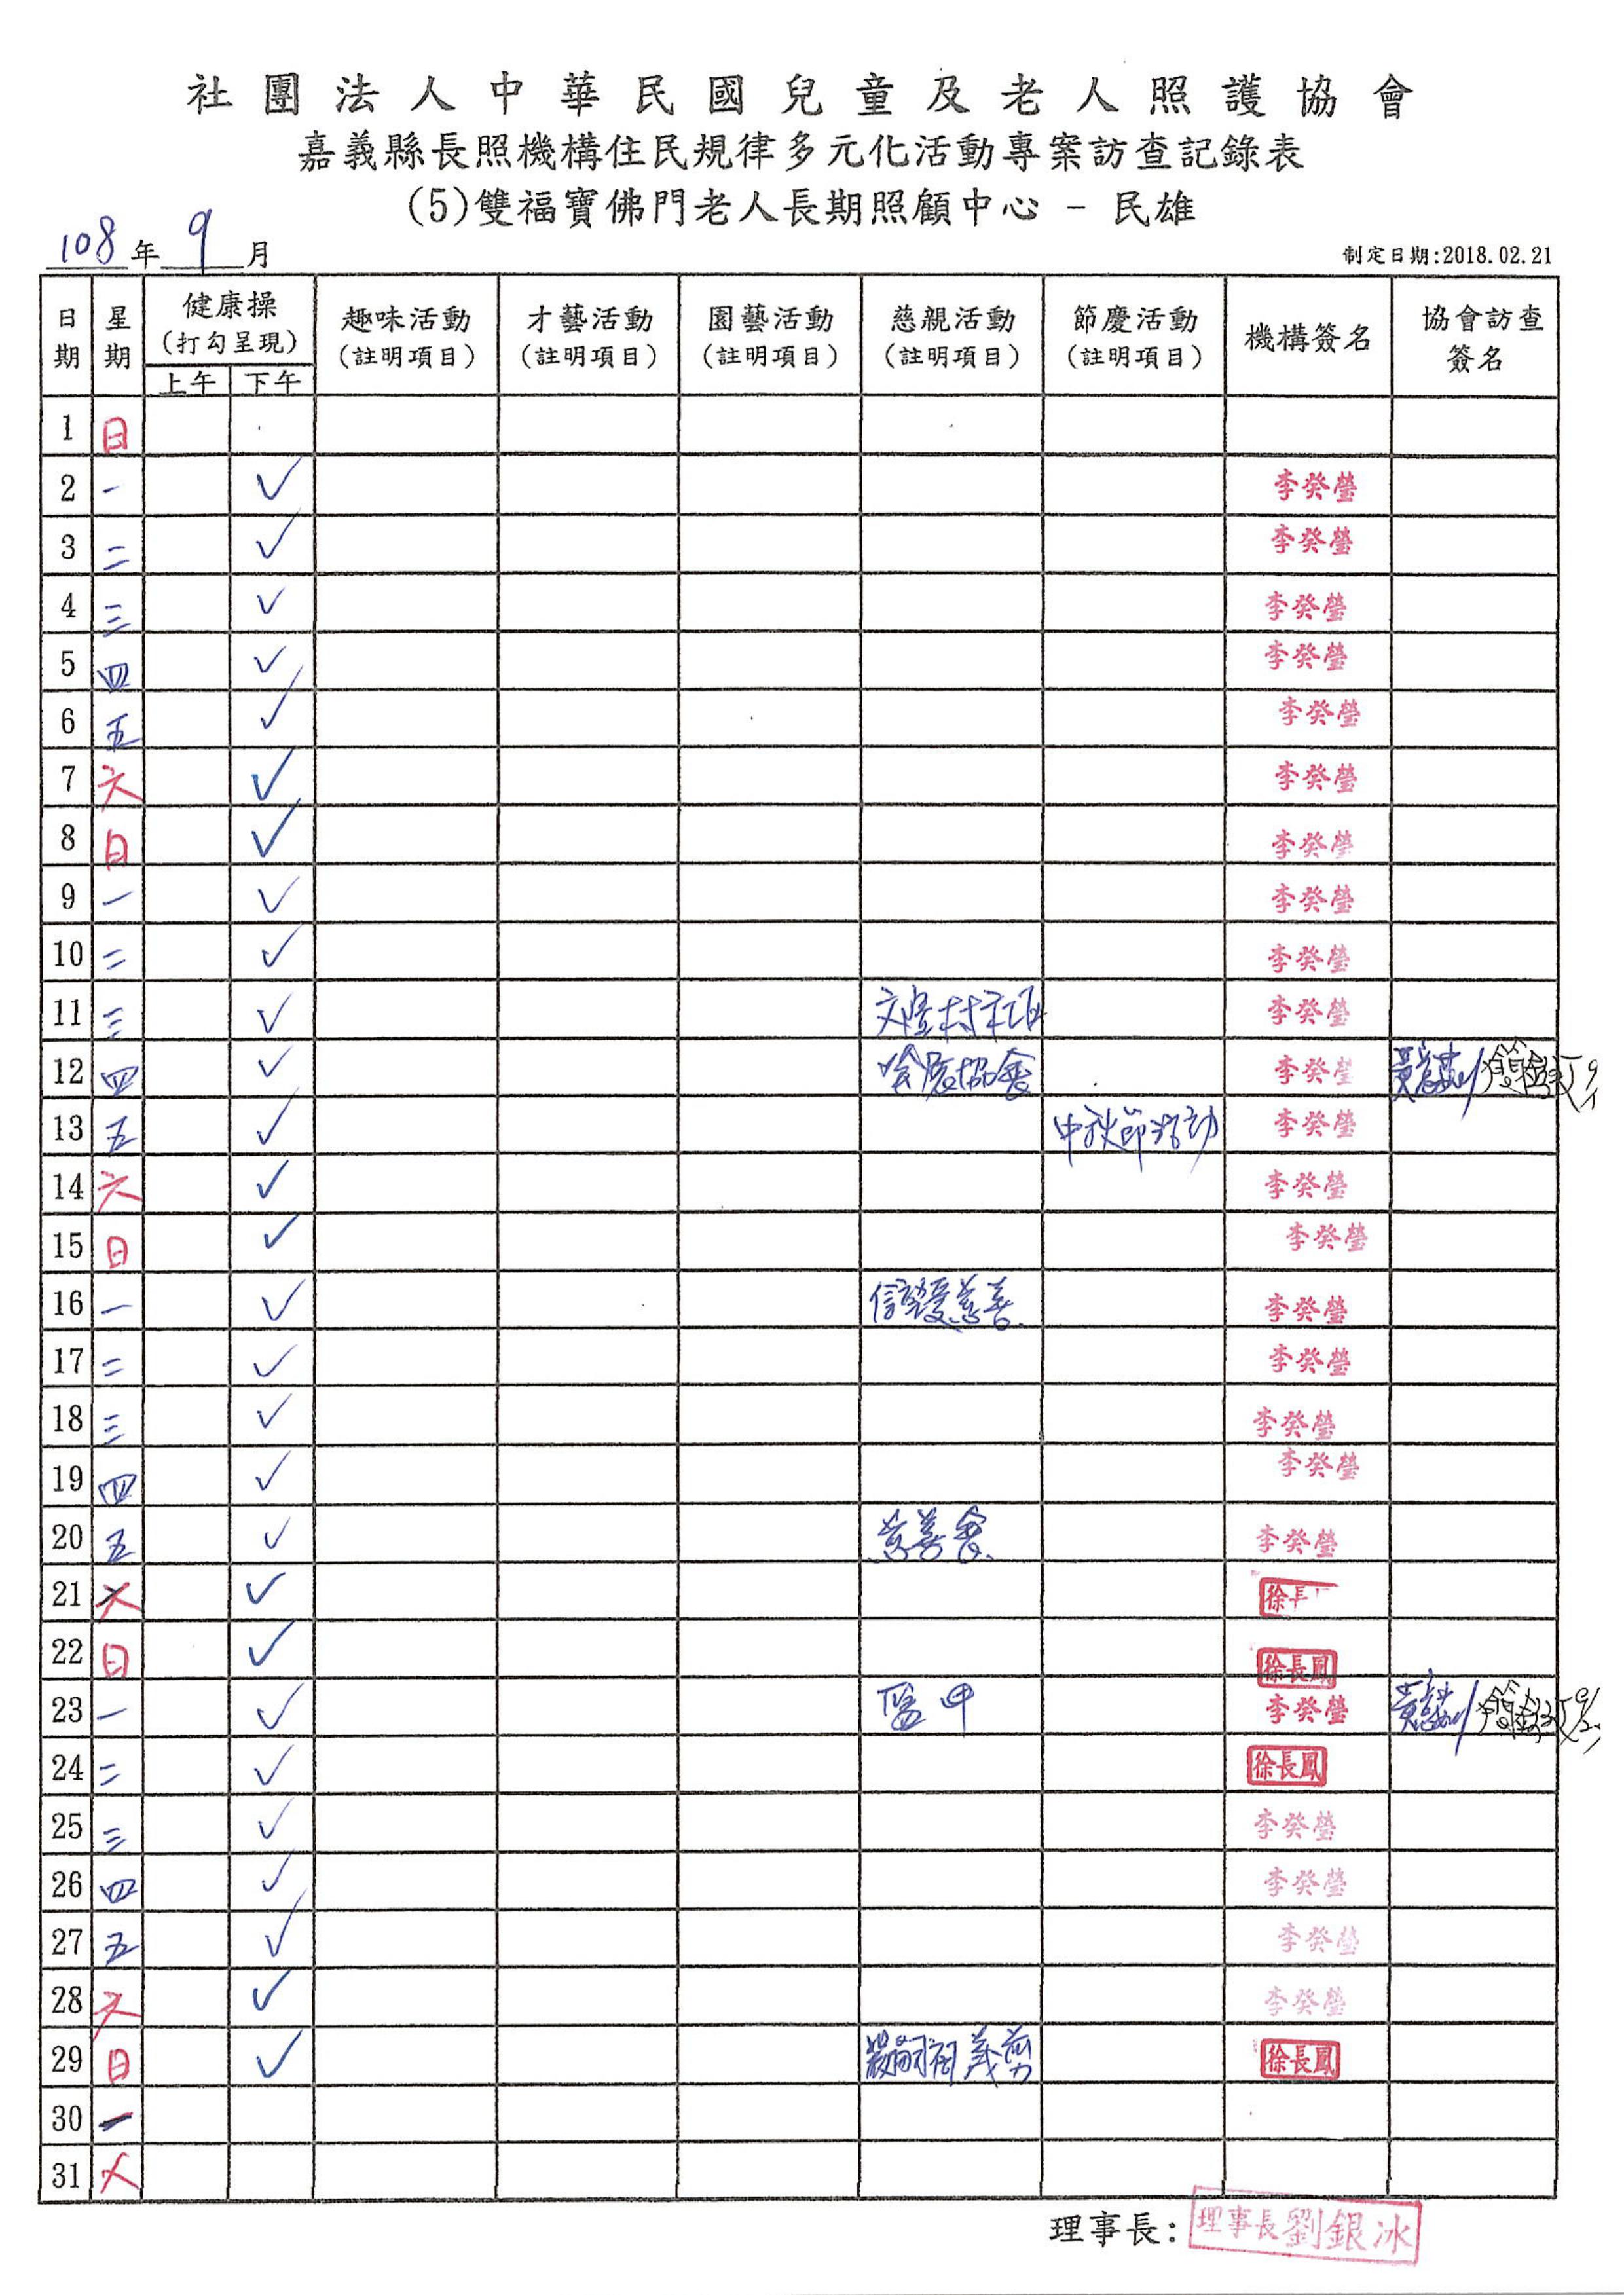 社團法人中華民國兒童及老人照護協會
嘉義縣長照機構住民規律多元化活動專案訪查記錄表
(5)雙福寶佛門老人長期照顧中心 - 民雄
108年 9 月
制定日期:2018.02.21
日期 星期 健康操 (打勾呈現) 上午 下午 趣味活動 (註明項目) 才藝活動 (註明項目) 園藝活動 (註明項目) 慈親活動 (註明項目) 節慶活動 (註明項目) 機構簽名 協會訪查簽名
1 日
2 一 ✓ 李癸瑩
3 二 ✓ 李癸瑩
4 三 ✓ 李癸瑩
5 四 ✓ 李癸瑩
6 五 ✓ 李癸瑩
7 六 ✓ 李癸瑩
8 日 ✓ 李癸瑩
9 一 ✓ 李癸瑩
10 二 ✓ 李癸瑩
11 三 ✓ 李癸瑩
12 四 ✓ 協會 李癸瑩
13 五 ✓ 中秋節活動 李癸瑩
14 六 ✓ 李癸瑩
15 日 ✓ 李癸瑩
16 一 ✓ 信望愛慈善 李癸瑩
17 二 ✓ 李癸瑩
18 三 ✓ 李癸瑩
19 四 ✓ 李癸瑩
20 五 ✓ 慈善會 李癸瑩
21 六 ✓ 徐長
22 日 ✓ 徐長鳳
23 一 ✓ 李癸瑩
24 二 ✓ 徐長鳳
25 三 ✓ 李癸瑩
26 四 ✓ 李癸瑩
27 五 ✓ 李癸瑩
28 六 ✓ 李癸瑩
29 日 ✓ 義剪 徐長鳳
30 一
31
理事長: 理事長劉銀冰